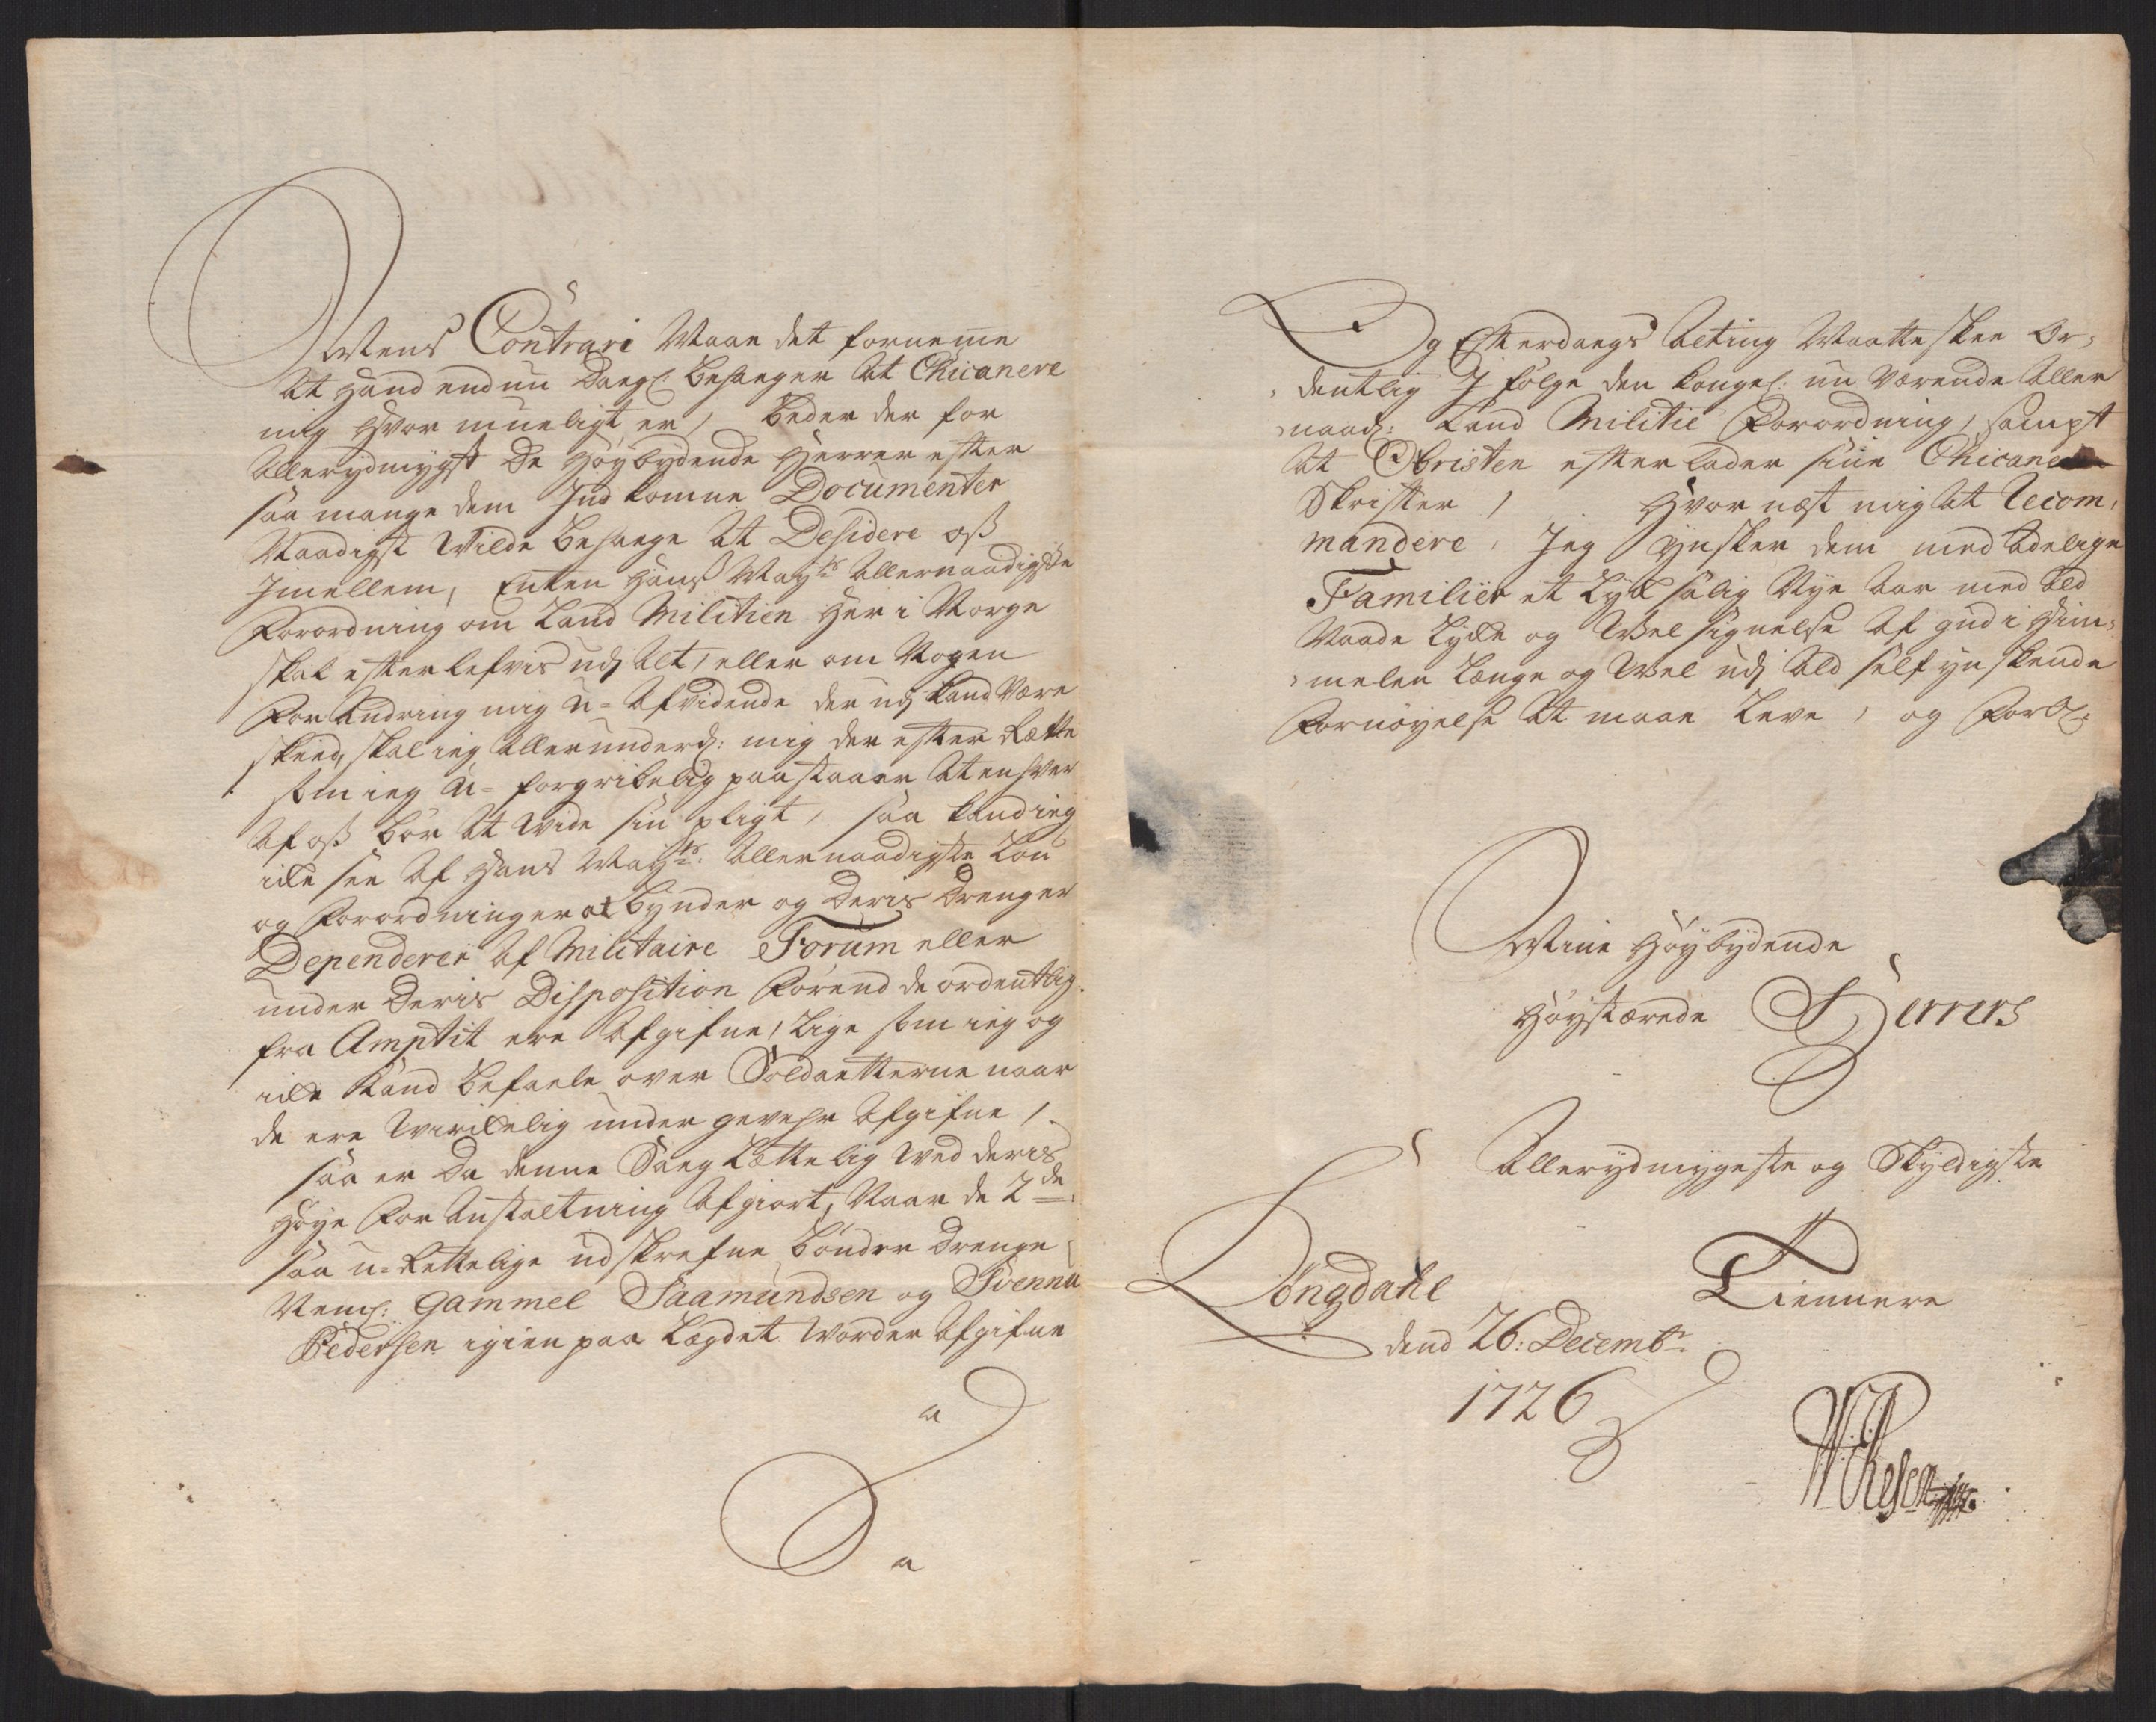 Mens Contrari Maae det fornemme
At hand endnu Dagl: behager At Chicanere
mig Hvor mueligt er, beder der for
Allerydmygst De Høybydende Herrer efter
saa mange dem Ind komne Documenter
Naadigst Wilde behage At Desidere oß
Imellem, Enten Hans May:ts Allernaadigste
Forordning om Land Militien Her i Norge
skal efterlefvis udj Alt, eller om Nogen
For Andring mig u-Afvidende der udj kand Være
skeed, skal ieg Allerunderd: mig der efter Rætte
som ieg u-forgribelig paastaaer At enhver
Af oß bør At Wide sin pligt, saa kand ieg
icke see Af Hans May:ts Allernaadigste Lou
og Forordninger at bynder og Deris Drenger
Dependerer Af Militaire Forum eller
under Deris Disposition Førend de ordentlig
fra Amptit ere Afgifne, Lige som ieg og
icke Kand befaele over Soldaetterne naar
de ere Wirckelig under gevehr Afgifne,
saa er Da denne Saeg Lættelig Wed deris
Høye For Anstaltning Afgiort, Naar de 2de
saa u-Rettelige udskrefne bønder Drenge
Neml: Gammel Saamundsen og Svennu
Pedersen igien paa Lægdet Worder Afgifne
a
a
Og Efterdaegs Alting Maatte skee Or-
dentlig I følge den kongel: nu Værende Aller
naad: Land Militie Forordning, sampt
At Obristen efterlader sine Chicane
Skrifter, Hvor næst mig At Recom-
mandere, Jeg Ynsker dem med Adelige
Familier et Lyksalig Nye Aar med Ald
Naade Lycke og Welsignelse Af gud i Him-
melen Længe og Wel udj Ald self ynskende
Fornøyelse At maae Leve, og Forbl:
Mine Høybydende
Høystærede Herrers
Allerydmygeste og Skyldigste
Tiennere
Longdahl
dend 26: Decemb:r
1726